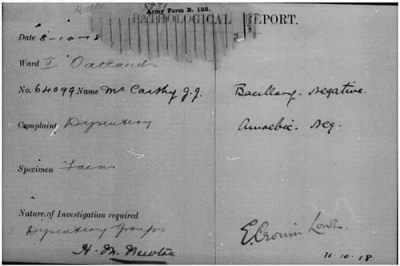 Army Form B. 122.
PATHOLOGICAL REPORT.
Date 8-10-18
Ward Oaklands
No. 64099 Name McCarthy J.J.
Bacillary. Negative.
Complaint Dysentery
Amoebic. Neg.
Specimen Faeces
Nature of Investigation required
Dysentery Groups
H. M. Newton
E. Cronin Lowe.
11-10-18